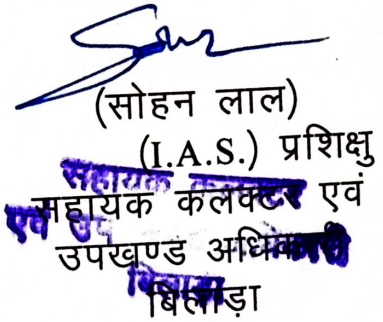 (सोहन लाल)
(I.A.S.) प्रशिक्षु
सहायक कलक्टर एवं
उपखण्ड अधिकारी
बिलाड़ा